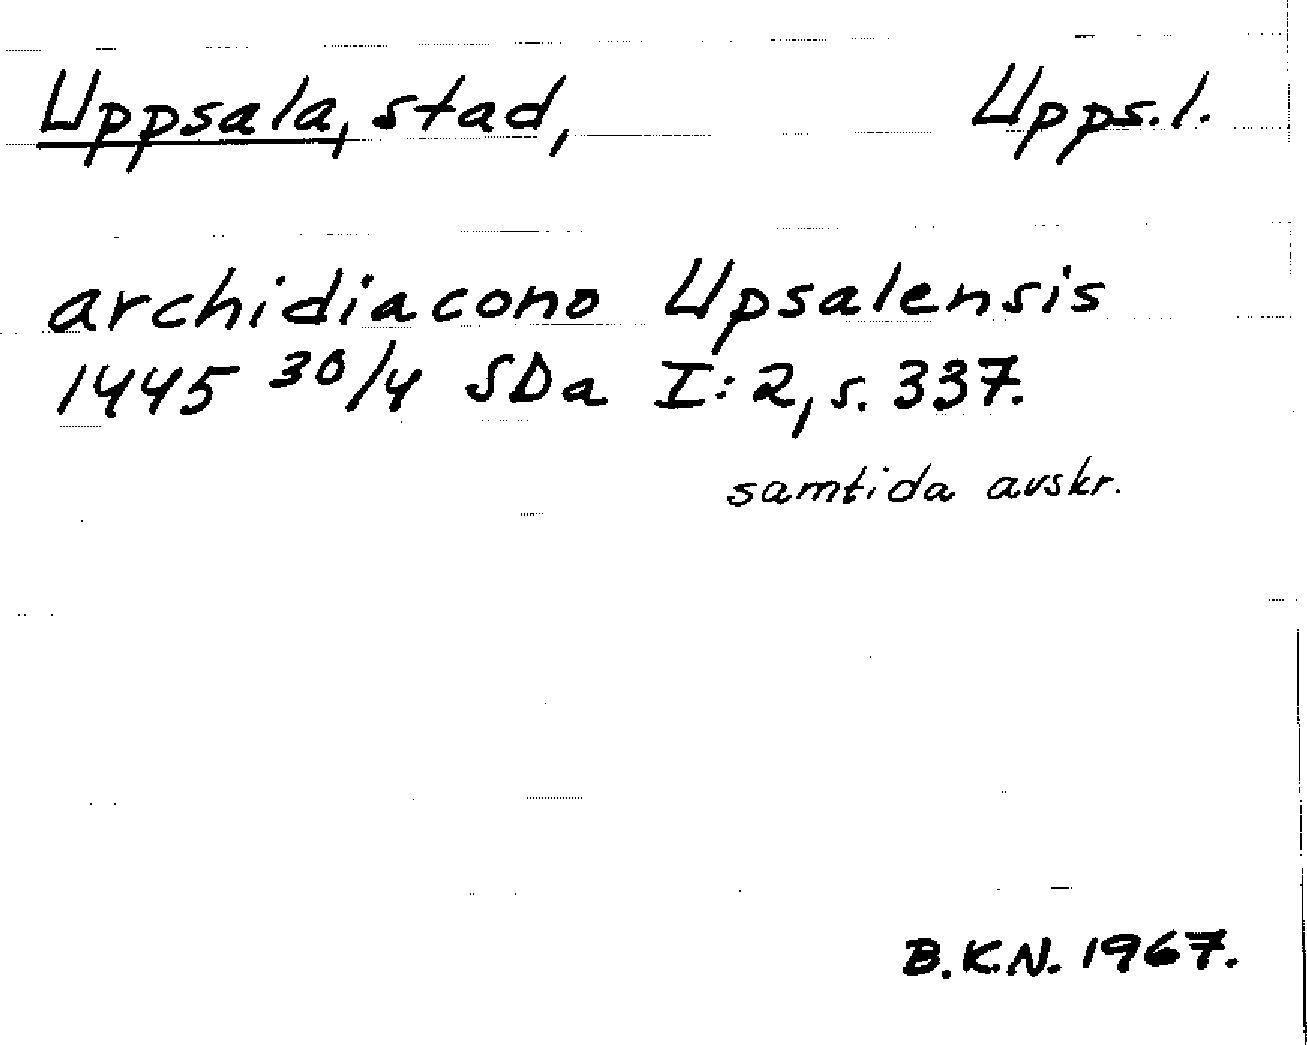 Uppsala, stad, Upps.l.
archidiacono Upsalensis
1445 30/4 SDa I:2, s. 337.
samtida avskr.
B.K.N. 1967.